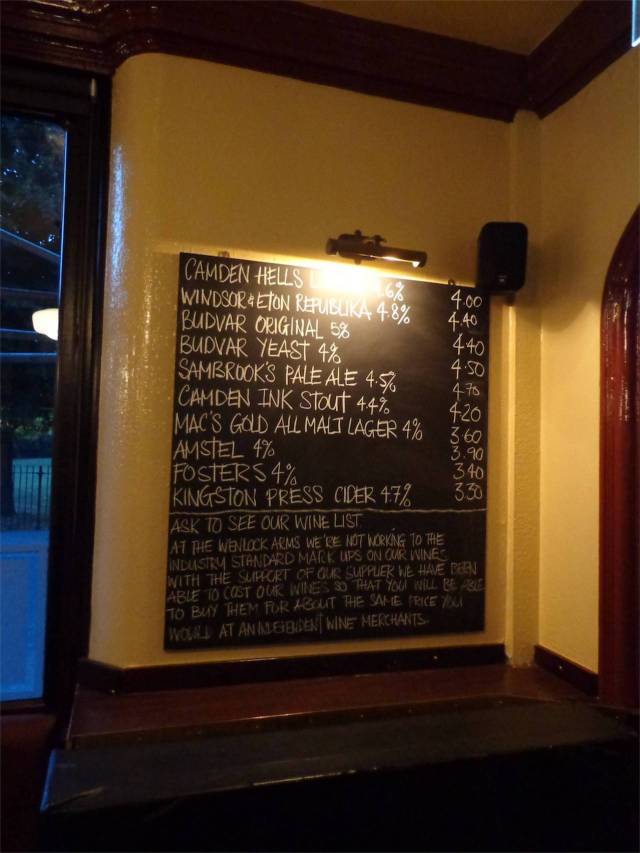 CAMDEN HELLS .6% 4.00
WINDSOR & ETON REPUBLIKA 4.8% 4.40
BUDVAR ORIGINAL 5% 4.40
BUDVAR YEAST 4% 4.50
SAMBROOK'S PALE ALE 4.5% 4.70
CAMDEN INK STOUT 4.4% 4.20
MAC'S GOLD ALL MALT LAGER 4% 3.60
AMSTEL 4% 3.90
FOSTERS 4% 3.40
KINGSTON PRESS CIDER 4.7% 3.30
ASK TO SEE OUR WINE LIST.
AT THE WENLOCK ARMS WE'RE NOT WORKING TO THE
INDUSTRY STANDARD MARK UPS ON OUR WINES.
WITH THE SUPPORT OF OUR SUPPLIER WE HAVE BEEN
ABLE TO COST OUR WINES SO THAT YOU WILL BE ABLE
TO BUY THEM FOR ABOUT THE SAME PRICE YOU
WOULD AT AN INDEPENDENT WINE MERCHANTS.